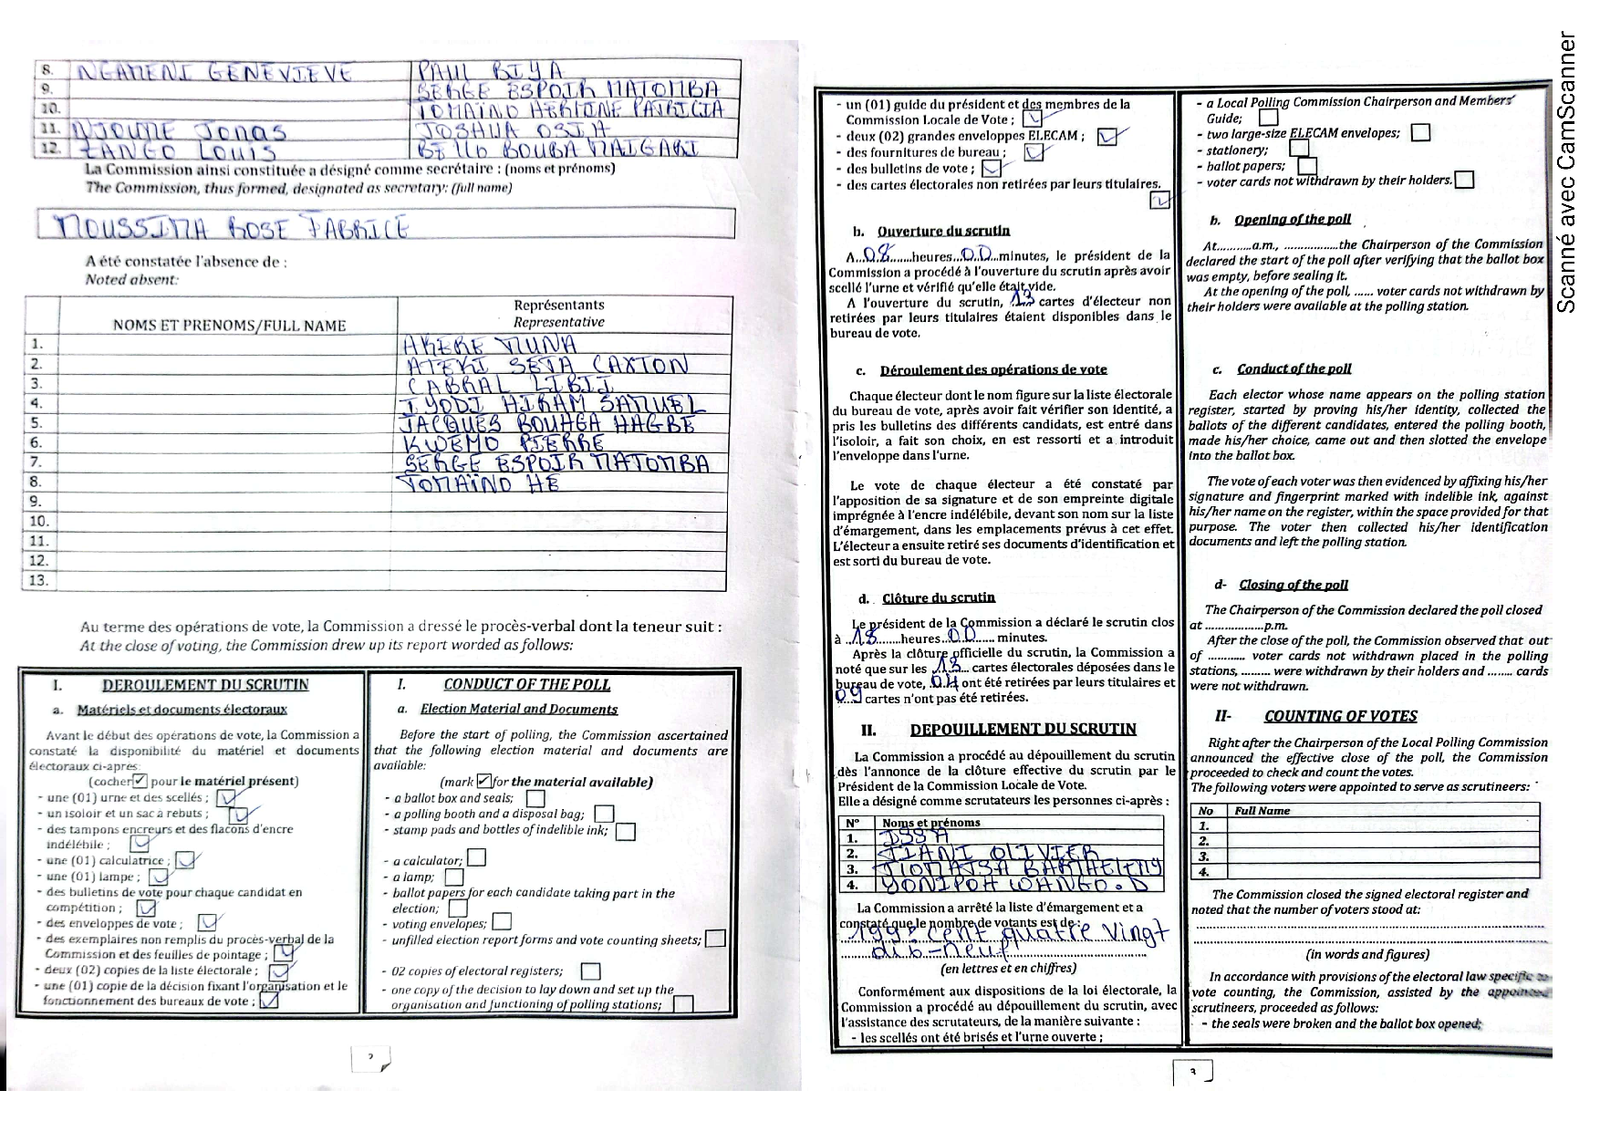 8. NGAMENI GENEVIEVE PAUL BIYA
9. SERGE ESPOIR MATOMBA
10. TOMAÏNO HERMINE PATRICIA
11. NJOUME Jonas JOSHUA OSIH
12. ZANGO LOUIS BELLO BOUBA MAIGARI
La Commission ainsi constituée a désigné comme secrétaire : (noms et prénoms)
The Commission, thus formed, designated as secretary: (full name)
MOUSSIMA ROSE FABRICE
A été constatée l'absence de :
Noted absent:
NOMS ET PRENOMS/FULL NAME
Représentants
Representative
1. AKERE MUNA
2. ATEKI SETA CAXTON
3. CABRAL LIBII
4. IYODI HIRAM SAMUEL
5. JACQUES BOUHGA HAGBE
6. KWEMO PIERRE
7. SERGE ESPOIR MATOMBA
8. TOMAÏNO HE
9.
10.
11.
12.
13.
Au terme des opérations de vote, la Commission a dressé le procès-verbal dont la teneur suit :
At the close of voting, the Commission drew up its report worded as follows:
I. DEROULEMENT DU SCRUTIN
a. Matériels et documents électoraux
Avant le début des opérations de vote, la Commission a
constaté la disponibilité du matériel et documents
électoraux ci-après
(cocher ✓ pour le matériel présent)
- une (01) urne et des scellés ;
- un isoloir et un sac à rebuts ;
- des tampons encreurs et des flacons d'encre
indélébile ;
- une (01) calculatrice ;
- une (01) lampe ;
- des bulletins de vote pour chaque candidat en
compétition ;
- des enveloppes de vote ;
- des exemplaires non remplis du procès-verbal de la
Commission et des feuilles de pointage ;
- deux (02) copies de la liste électorale ;
- une (01) copie de la décision fixant l'organisation et le
fonctionnement des bureaux de vote ;
I. CONDUCT OF THE POLL
a. Election Material and Documents
Before the start of polling, the Commission ascertained
that the following election material and documents are
available:
(mark ✓ for the material available)
- a ballot box and seals;
- a polling booth and a disposal bag;
- stamp pads and bottles of indelible ink;
- a calculator;
- a lamp;
- ballot papers for each candidate taking part in the
election;
- voting envelopes;
- unfilled election report forms and vote counting sheets;
- 02 copies of electoral registers;
- one copy of the decision to lay down and set up the
organisation and functioning of polling stations;
2
- un (01) guide du président et des membres de la
Commission Locale de Vote ;
- deux (02) grandes enveloppes ELECAM ;
- des fournitures de bureau ;
- des bulletins de vote ;
- des cartes électorales non retirées par leurs titulaires.
b. Ouverture du scrutin
A...08...heures...00...minutes, le président de la
Commission a procédé à l'ouverture du scrutin après avoir
scellé l'urne et vérifié qu'elle était vide.
A l'ouverture du scrutin, 13 cartes d'électeur non
retirées par leurs titulaires étaient disponibles dans le
bureau de vote.
c. Déroulement des opérations de vote
Chaque électeur dont le nom figure sur la liste électorale
du bureau de vote, après avoir fait vérifier son identité, a
pris les bulletins des différents candidats, est entré dans
l'isoloir, a fait son choix, en est ressorti et a introduit
l'enveloppe dans l'urne.
Le vote de chaque électeur a été constaté par
l'apposition de sa signature et de son empreinte digitale
imprégnée à l'encre indélébile, devant son nom sur la liste
d'émargement, dans les emplacements prévus à cet effet.
L'électeur a ensuite retiré ses documents d'identification et
est sorti du bureau de vote.
d. Clôture du scrutin
Le président de la Commission a déclaré le scrutin clos
à ..18......heures..00...... minutes.
Après la clôture officielle du scrutin, la Commission a
noté que sur les ..13... cartes électorales déposées dans le
bureau de vote, ..04 ont été retirées par leurs titulaires et
09 cartes n'ont pas été retirées.
II. DEPOUILLEMENT DU SCRUTIN
La Commission a procédé au dépouillement du scrutin
dès l'annonce de la clôture effective du scrutin par le
Président de la Commission Locale de Vote.
Elle a désigné comme scrutateurs les personnes ci-après :
N° Noms et prénoms
1. ISSA
2. OLIVIER
3.
4.
La Commission a arrêté la liste d'émargement et a
constaté que le nombre de votants est de :
199 cent quatre vingt
dix-neuf
(en lettres et en chiffres)
Conformément aux dispositions de la loi électorale, la
Commission a procédé au dépouillement du scrutin, avec
l'assistance des scrutateurs, de la manière suivante :
- les scellés ont été brisés et l'urne ouverte ;
- a Local Polling Commission Chairperson and Members'
Guide;
- two large-size ELECAM envelopes;
- stationery;
- ballot papers;
- voter cards not withdrawn by their holders.
b. Opening of the poll
At...........a.m., .................the Chairperson of the Commission
declared the start of the poll after verifying that the ballot box
was empty, before sealing it.
At the opening of the poll, ...... voter cards not withdrawn by
their holders were available at the polling station.
c. Conduct of the poll
Each elector whose name appears on the polling station
register, started by proving his/her identity, collected the
ballots of the different candidates, entered the polling booth,
made his/her choice, came out and then slotted the envelope
into the ballot box.
The vote of each voter was then evidenced by affixing his/her
signature and fingerprint marked with indelible ink, against
his/her name on the register, within the space provided for that
purpose. The voter then collected his/her identification
documents and left the polling station.
d- Closing of the poll
The Chairperson of the Commission declared the poll closed
at ..................p.m.
After the close of the poll, the Commission observed that out
of ............ voter cards not withdrawn placed in the polling
stations, ......... were withdrawn by their holders and ........ cards
were not withdrawn.
II- COUNTING OF VOTES
Right after the Chairperson of the Local Polling Commission
announced the effective close of the poll, the Commission
proceeded to check and count the votes.
The following voters were appointed to serve as scrutineers:
No Full Name
1.
2.
3.
4.
The Commission closed the signed electoral register and
noted that the number of voters stood at:
(in words and figures)
In accordance with provisions of the electoral law specific to
vote counting, the Commission, assisted by the appointed
scrutineers, proceeded as follows:
- the seals were broken and the ballot box opened;
3
Scanné avec CamScanner